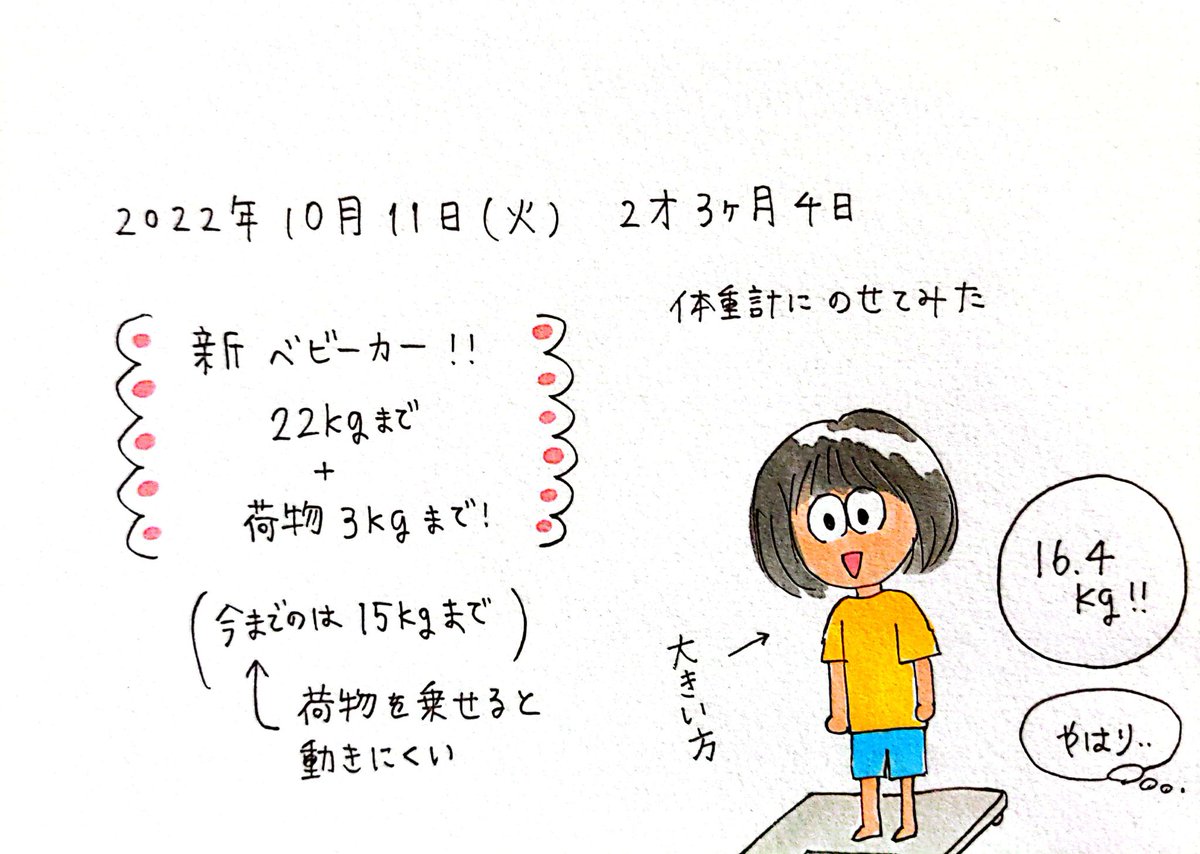 2022年10月11日(火) 2才3ヶ月4日
新ベビーカー!!
22kgまで
+
荷物3kgまで!
(今までのは15kgまで)
荷物を乗せると
動きにくい
体重計にのせてみた
大きい方
16.4
kg!!
やはり..